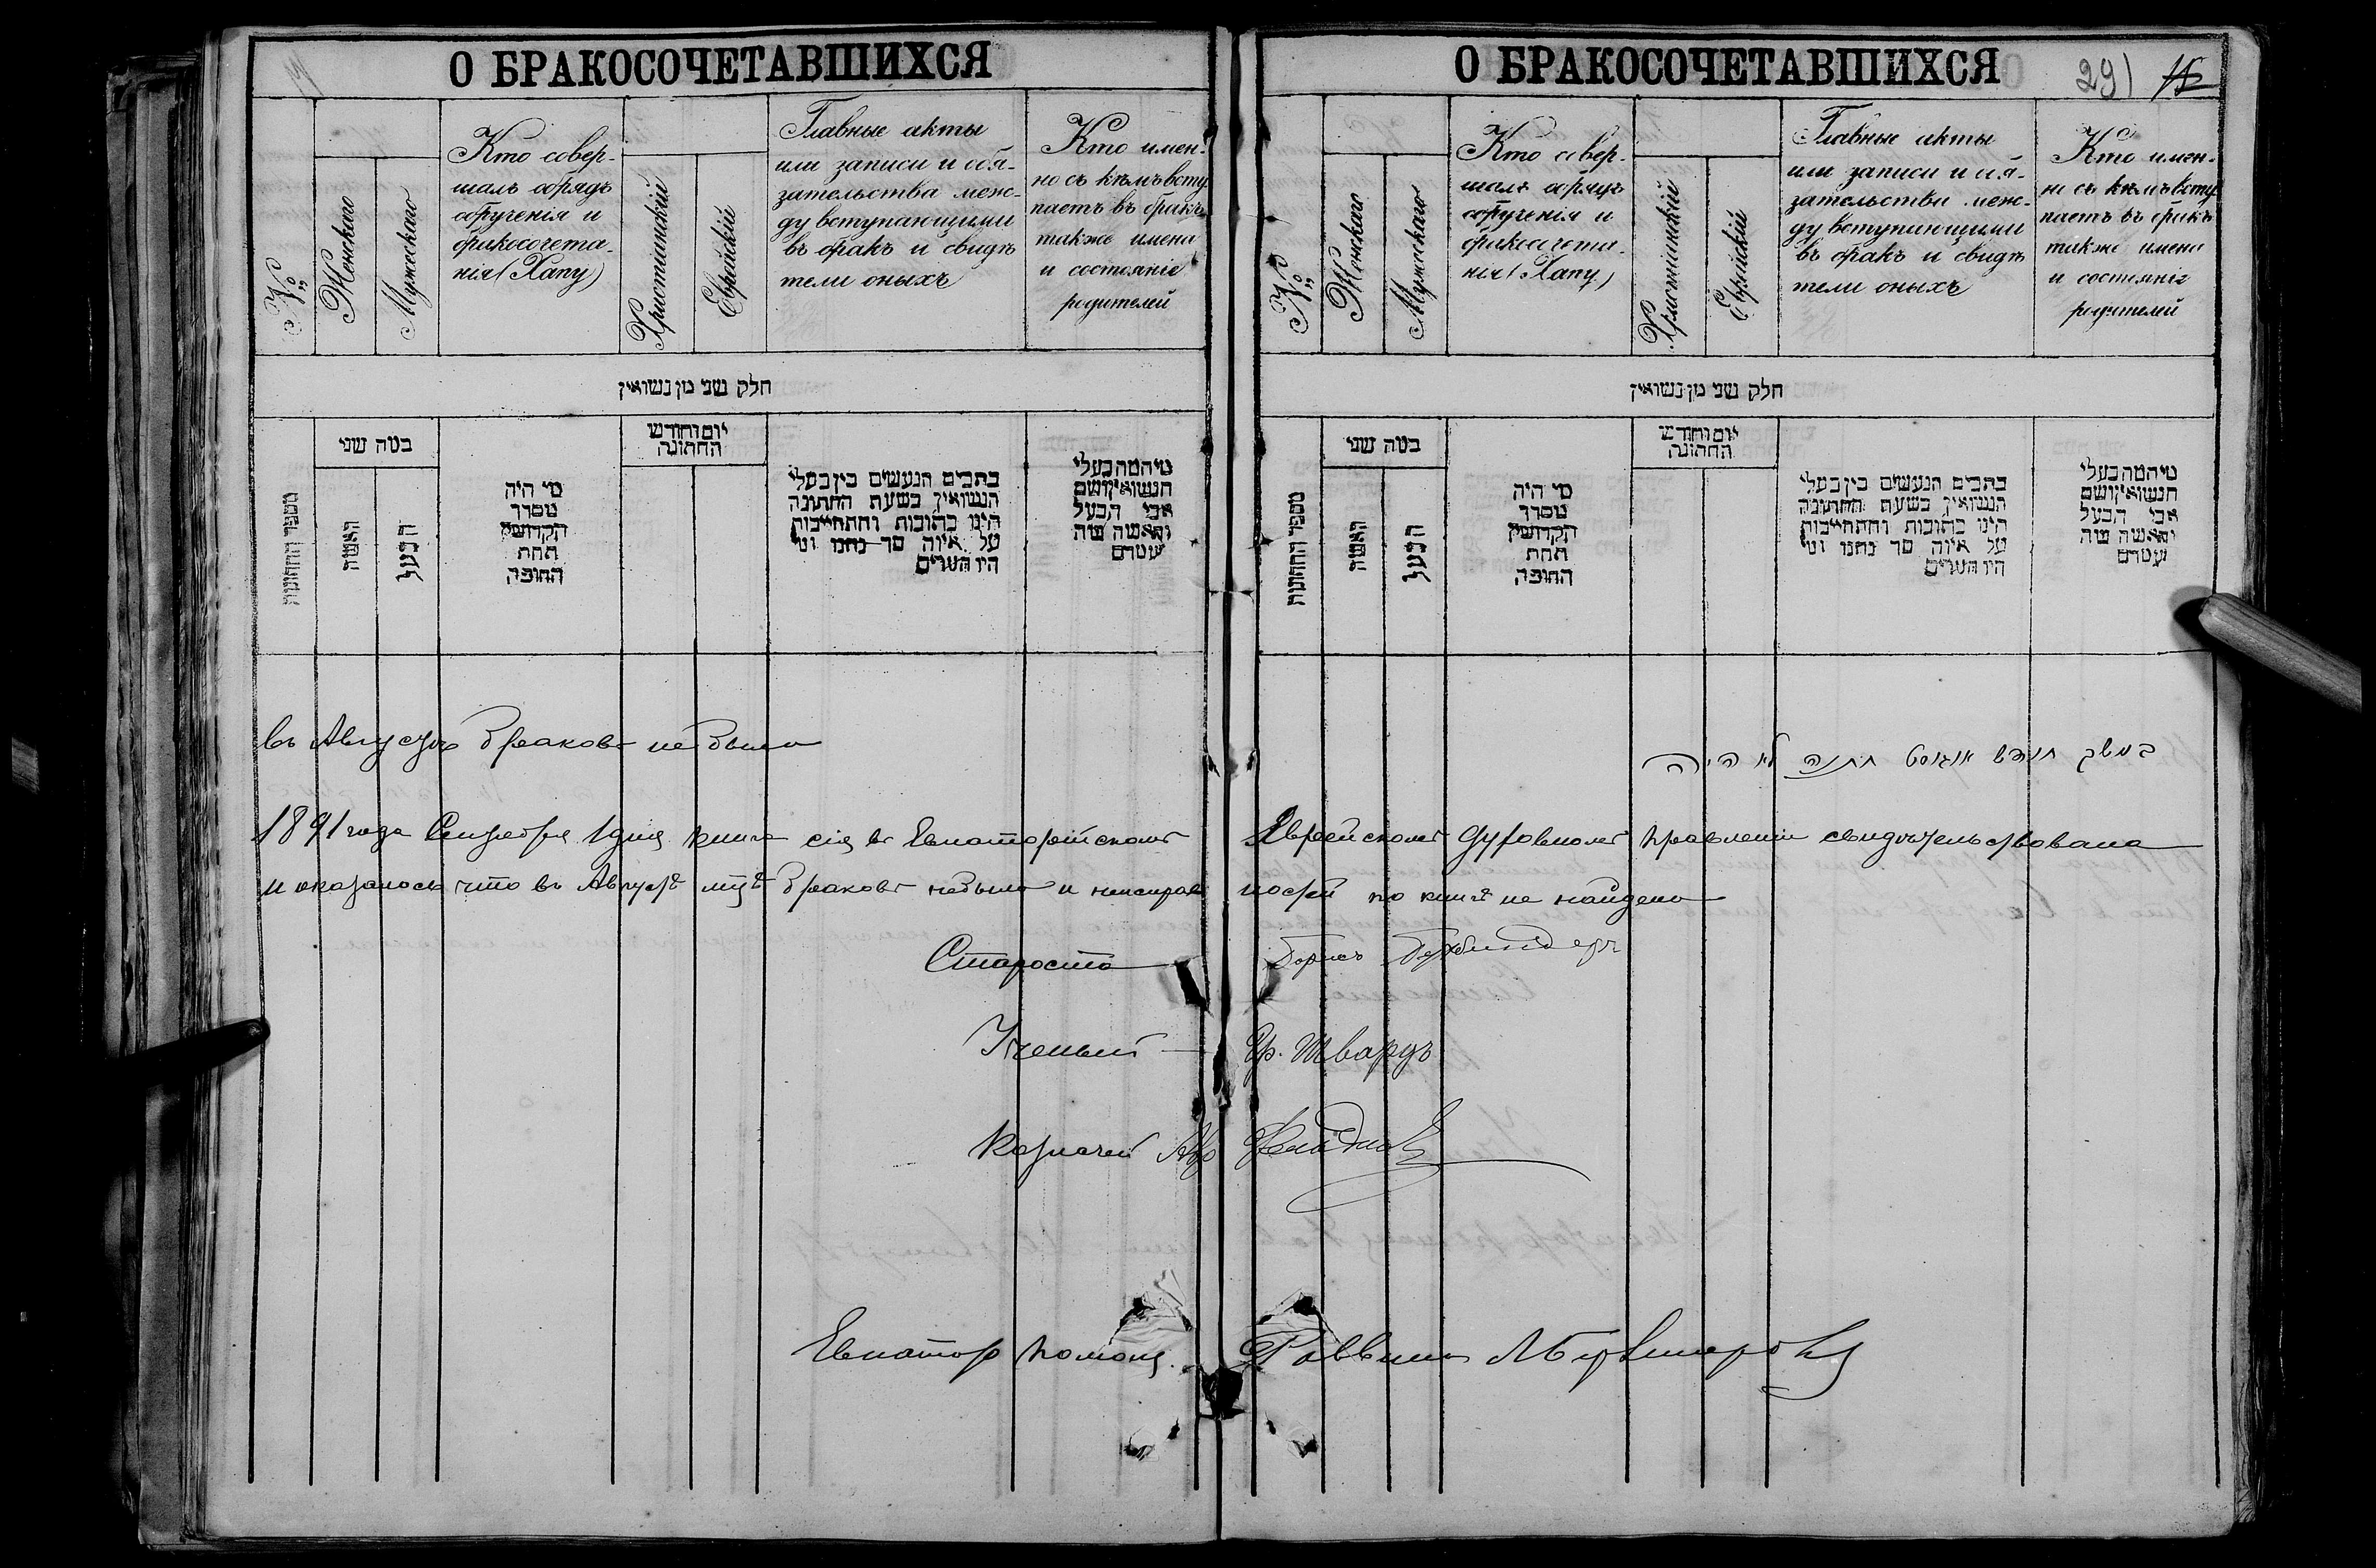 О БРАКОСОЧЕТАВШИХСЯ
№
Женскаго
Мужескаго
Кто совер-
шалъ обрядъ
обрученія и
бракосочета-
нія (Хапу)
Христіанскій
Еврейскій
Главные акты
или записи и обя-
зательства меж-
ду вступающими
въ бракъ и свидѣ
тели оныхъ
Кто имен-
но съ кѣмъ всту
паетъ въ бракъ
также имена
и состояніе
родителей
חלק שני מן נשואין
מספר החתונות
כמה שני
האשה
הבעל
מי היה
מסדר
הקדושין
תחת
החופה
יום וחודש
החתונה
כתבים הנעשים בין בעלי
הנשואין בשעת החתונה
הינו כתובות והתחייבות
על איזה סך נתנו ומי
היו העדים
מי המה בעלי
הנשואין ושם
אבי הבעל
והאשה ומה
מעמדם
въ Августѣ браковъ не было
1891 года Сентября 1 дня книга сія въ Евпаторійскомъ
и оказалось что въ Августѣ мцѣ браковъ небыло и неисправ
Староста
Ученый
Казначей Абр
Евпатор помощ.
О БРАКОСОЧЕТАВШИХСЯ
291 15
№
Женскаго
Мужескаго
Кто совер-
шалъ обрядъ
обрученія и
бракосочета-
нія (Хапу)
Христіанскій
Еврейскій
Главные акты
или записи и обя-
зательства меж-
ду вступающими
въ бракъ и свидѣ
тели оныхъ
Кто имен-
но съ кѣмъ всту
паетъ въ бракъ
также имена
и состояніе
родителей
חלק שני מן נשואין
מספר החתונות
כמה שני
האשה
הבעל
מי היה
מסדר
הקדושין
תחת
החופה
יום וחודש
החתונה
כתבים הנעשים בין בעלי
הנשואין בשעת החתונה
הינו כתובות והתחייבות
על איזה סך נתנו ומי
היו העדים
מי המה בעלי
הנשואין ושם
אבי הבעל
והאשה ומה
מעמדם
במשך חודש אוגוסט חתנה לא היה
Еврейскомъ Духовномъ Правленіи свидѣтельствована
ностей по книгѣ не найдено
Борисъ
Гр. Шварцъ
Раввинъ